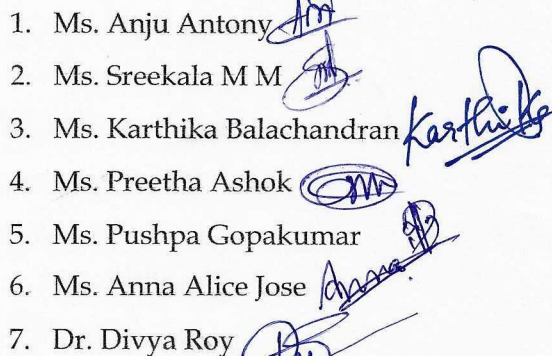 1. Ms. Anju Antony
2. Ms. Sreekala M M
3. Ms. Karthika Balachandran Karthika
4. Ms. Preetha Ashok
5. Ms. Pushpa Gopakumar
6. Ms. Anna Alice Jose Anna
7. Dr. Divya Roy